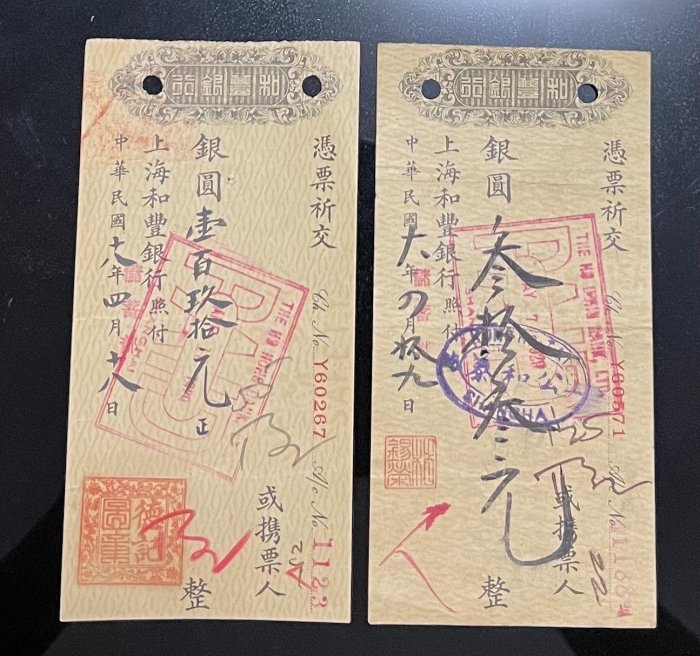 和豐銀行
憑票祈交
Ch. No. Y60267
A/c No. 1123
或携票人
銀圓壹百玖拾元正
整
上海和豐銀行照付
中華民國十八年四月十八日
儲蓄
THE HO HONG BANK, LTD.
PAID
和豐銀行
憑票祈交
Ch. No. Y60571
A/c No.
或携票人
22
銀圓叁拾叁元
整
上海和豐銀行照付
中華民國十八年四月拾九日
儲蓄
THE HO HONG BANK, LTD.
PAID
SHANGHAI